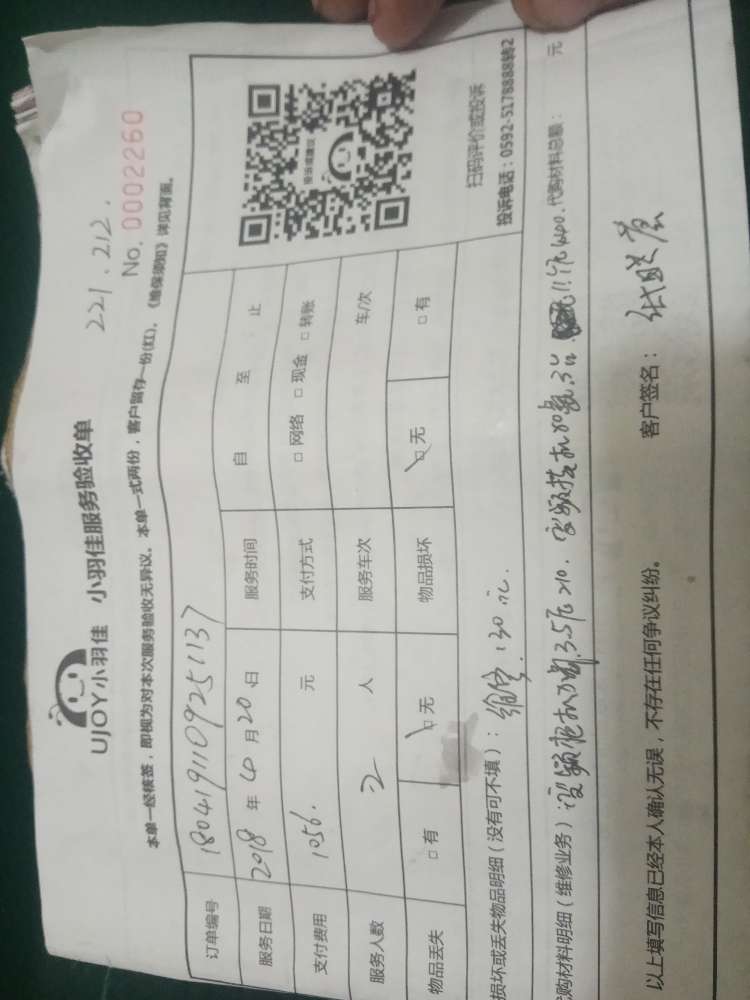 221.212.
UJOY小羽佳 小羽佳服务验收单
No. 0002260
本单一经核签，即视为对本次服务验收无异议。本单一式两份，客户留存一份(红)。《维保须知》详见背面。
订单编号 1804191109251137
服务日期 2018 年 4 月 20 日 服务时间 自 至 止
支付费用 1056. 元 支付方式 □ 网络 □ 现金 □ 转账
服务人数 2 人 服务车次 车/次
物品丢失 □ 有 □ 无 物品损坏 □ 无 □ 有
投诉或建议
扫码评价或投诉
投诉电话：0592-5178888转2
损坏或丢失物品明细（没有可不填）：维修.130元.
购材料明细（维修业务） 3.5 210. 代购材料总额： 元
以上填写信息已经本人确认无误，不存在任何争议纠纷。 客户签名：